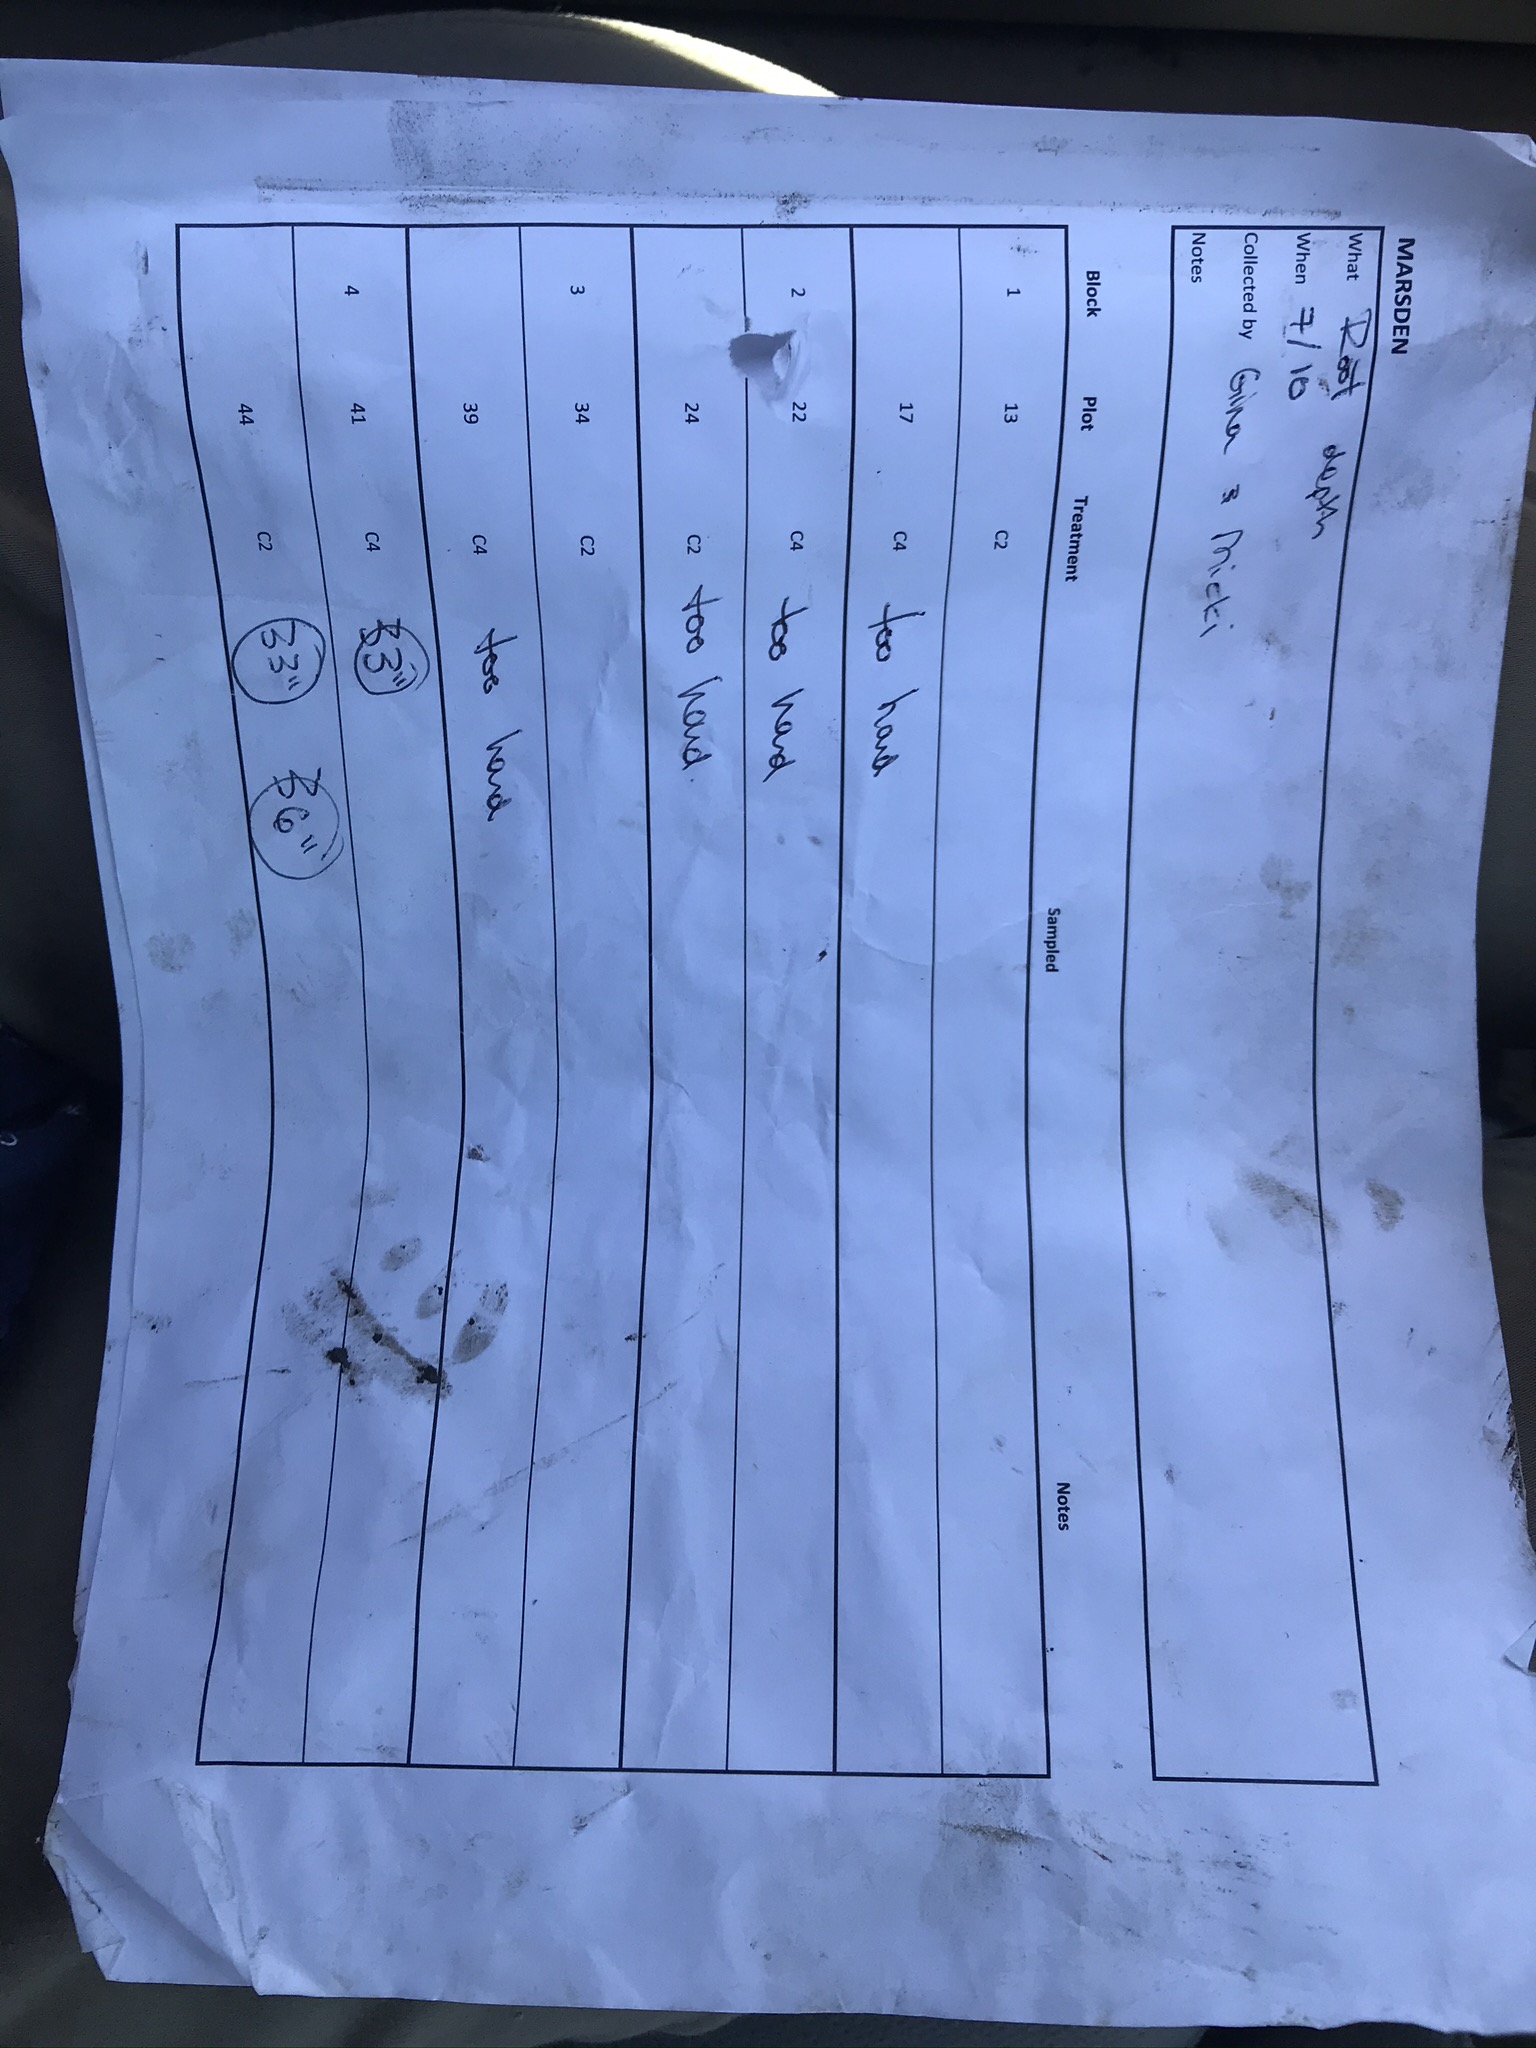 MARSDEN
What Root depth
When 7/10
Collected by Gina & Micki
Notes
Block Plot Treatment Sampled Notes
1 13 C2
17 C4 too hard
2 22 C4 too hard
24 C2 too hard.
3 34 C2
39 C4 too hard
4 41 C4 33"
44 C2 33" 36"